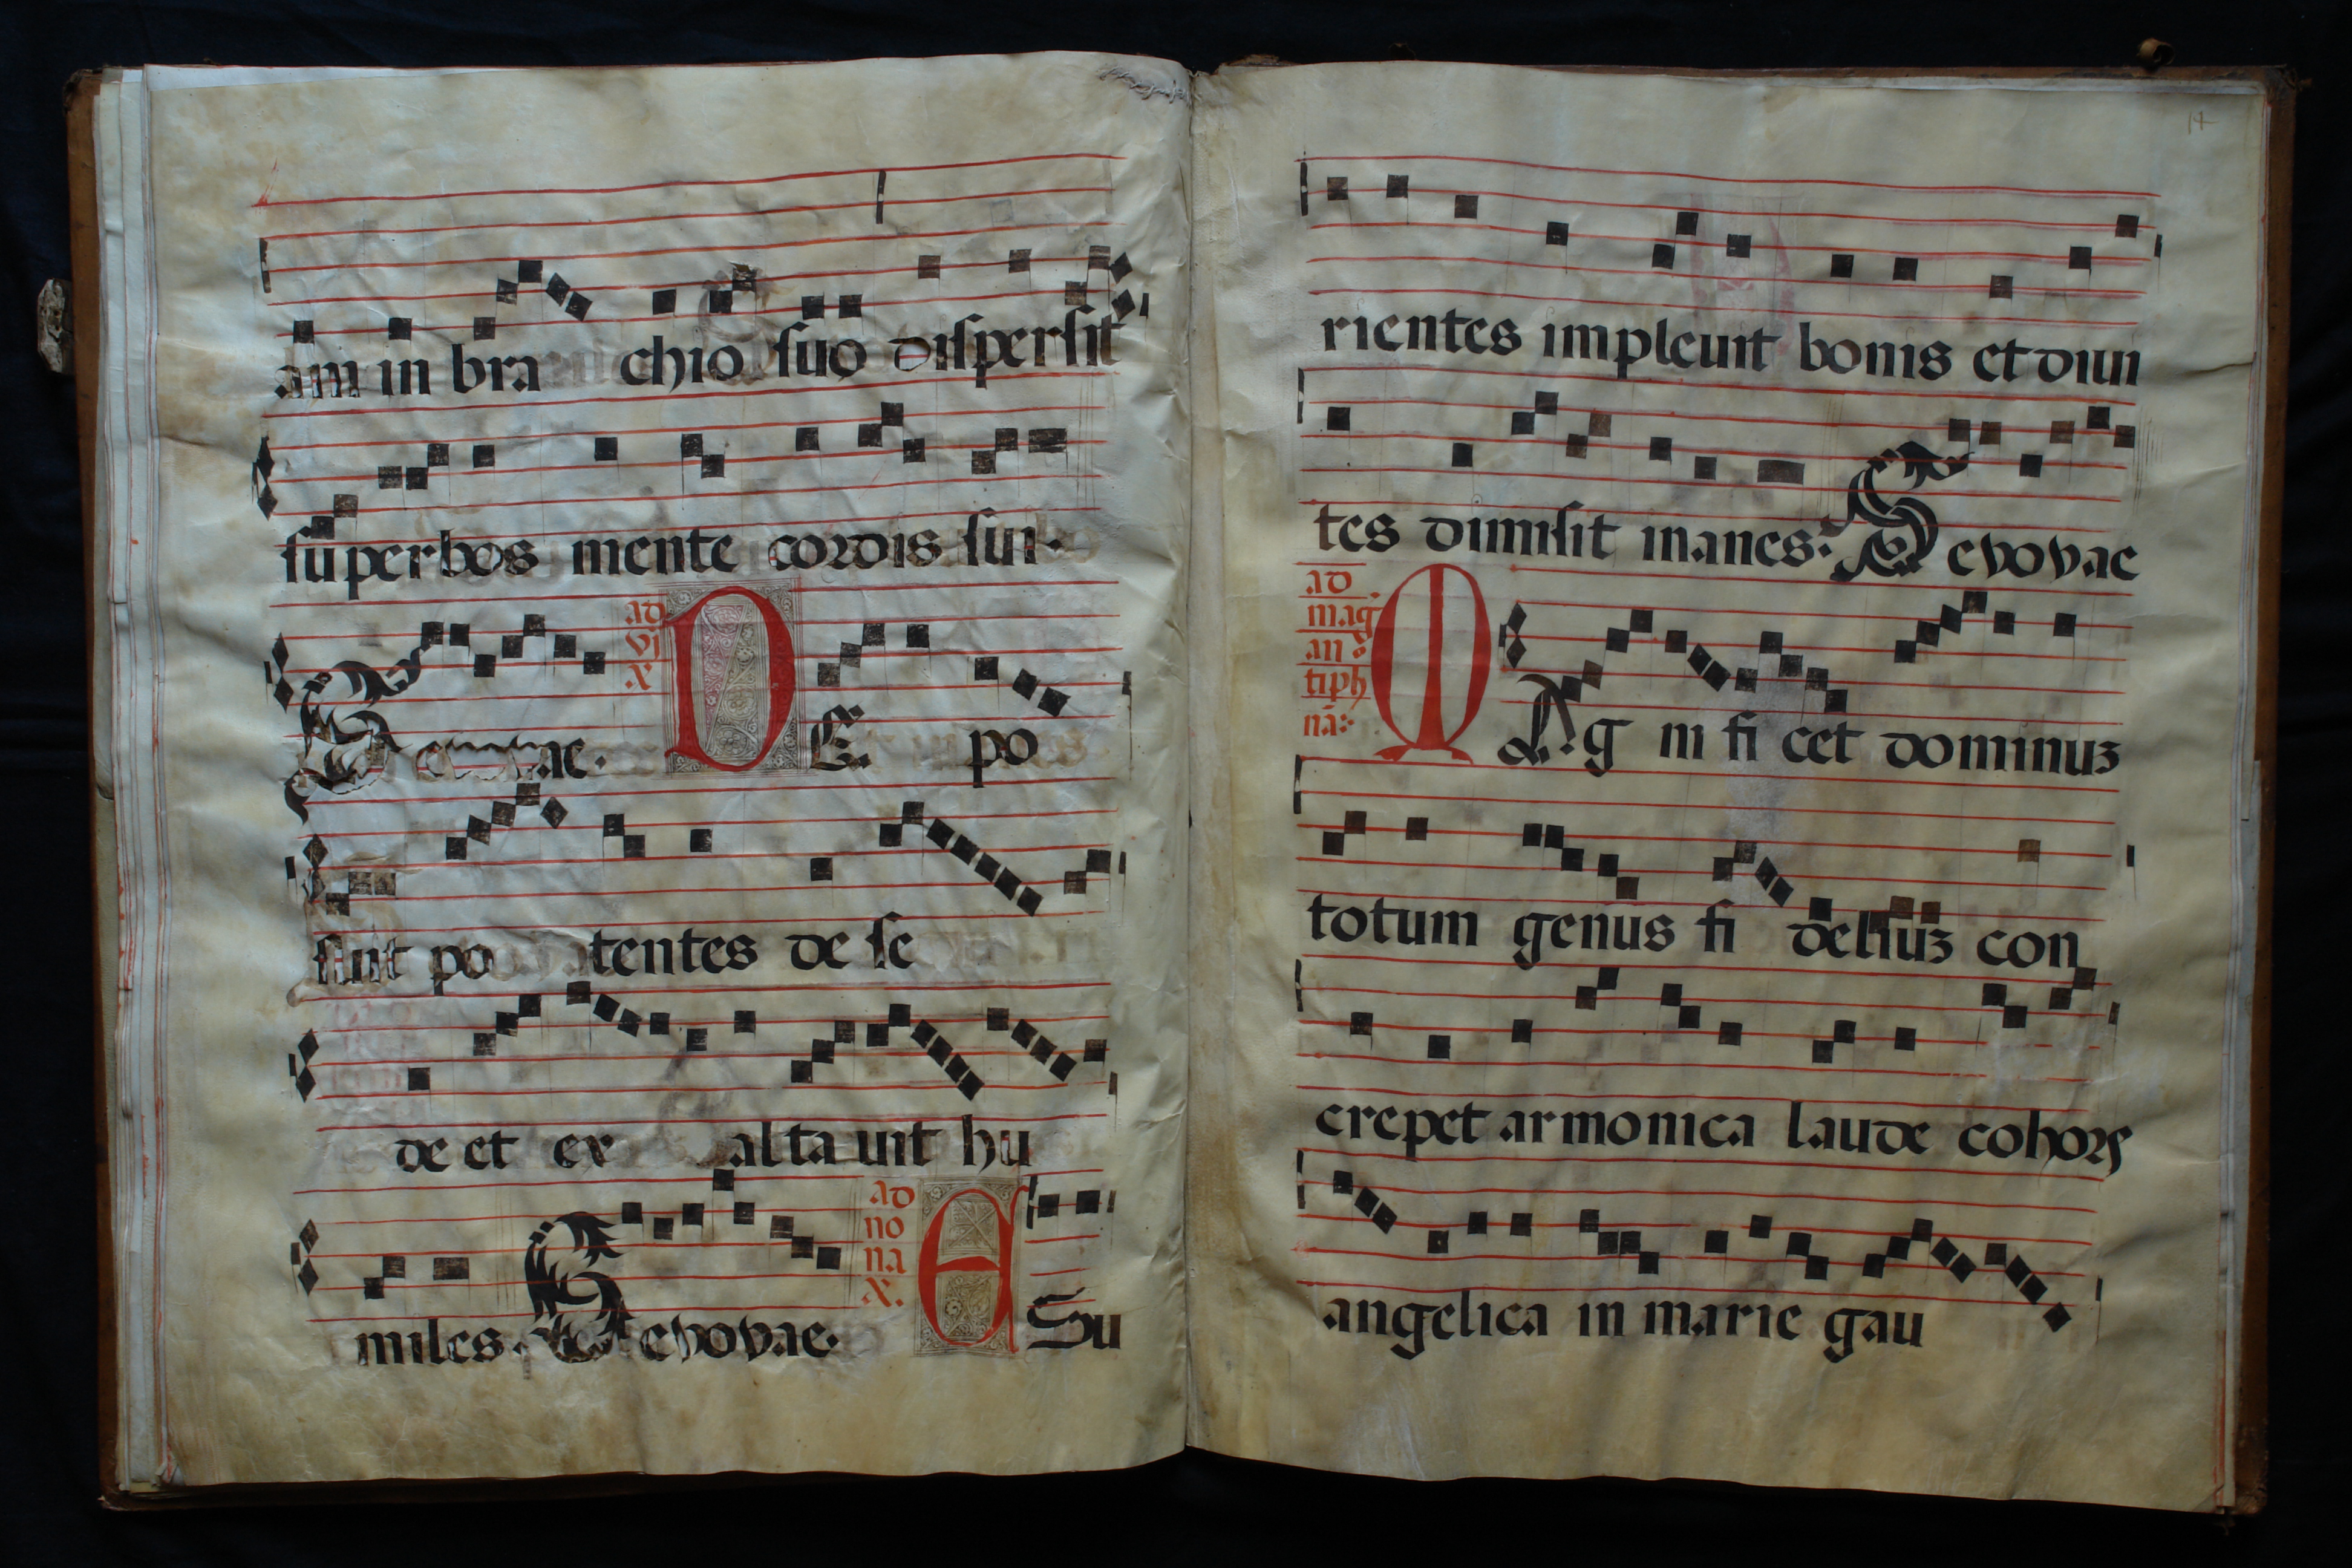 am in bra chio suo dispersit
superbos mente cordis sui.
Sevovae. ad vj x DE po
suit po tentes de se
de et ex alta uit hu
miles. Sevovae. ad no na x. ESu
14
rientes impleuit bonis et diui
tes dimisit inanes. Sevovae
ad mag an tiph nā MAg ni fi cet dominuz
totum genus fi deliuz con
crepet armonica laude cohors
angelica in marie gau